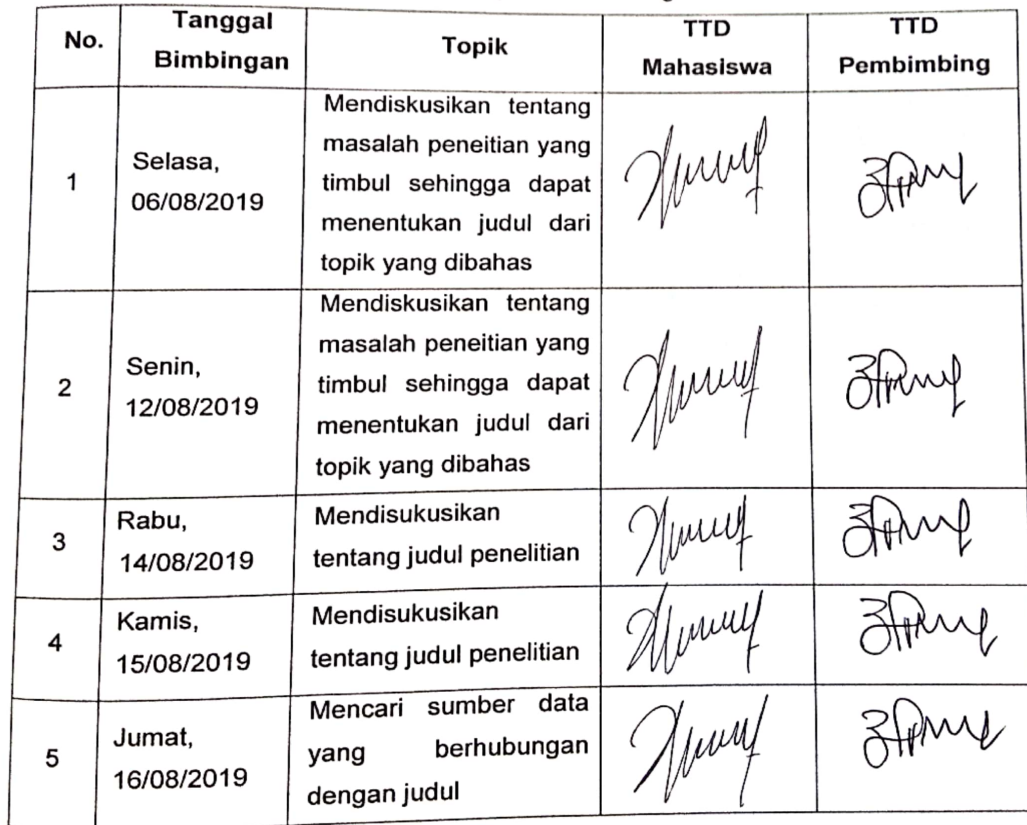 No.
Tanggal
Bimbingan
Topik
TTD
Mahasiswa
TTD
Pembimbing
1
Selasa,
06/08/2019
Mendiskusikan tentang
masalah peneitian yang
timbul sehingga dapat
menentukan judul dari
topik yang dibahas
2
Senin,
12/08/2019
Mendiskusikan tentang
masalah peneitian yang
timbul sehingga dapat
menentukan judul dari
topik yang dibahas
3
Rabu,
14/08/2019
Mendisukusikan
tentang judul penelitian
4
Kamis,
15/08/2019
Mendisukusikan
tentang judul penelitian
5
Jumat,
16/08/2019
Mencari sumber data
yang berhubungan
dengan judul